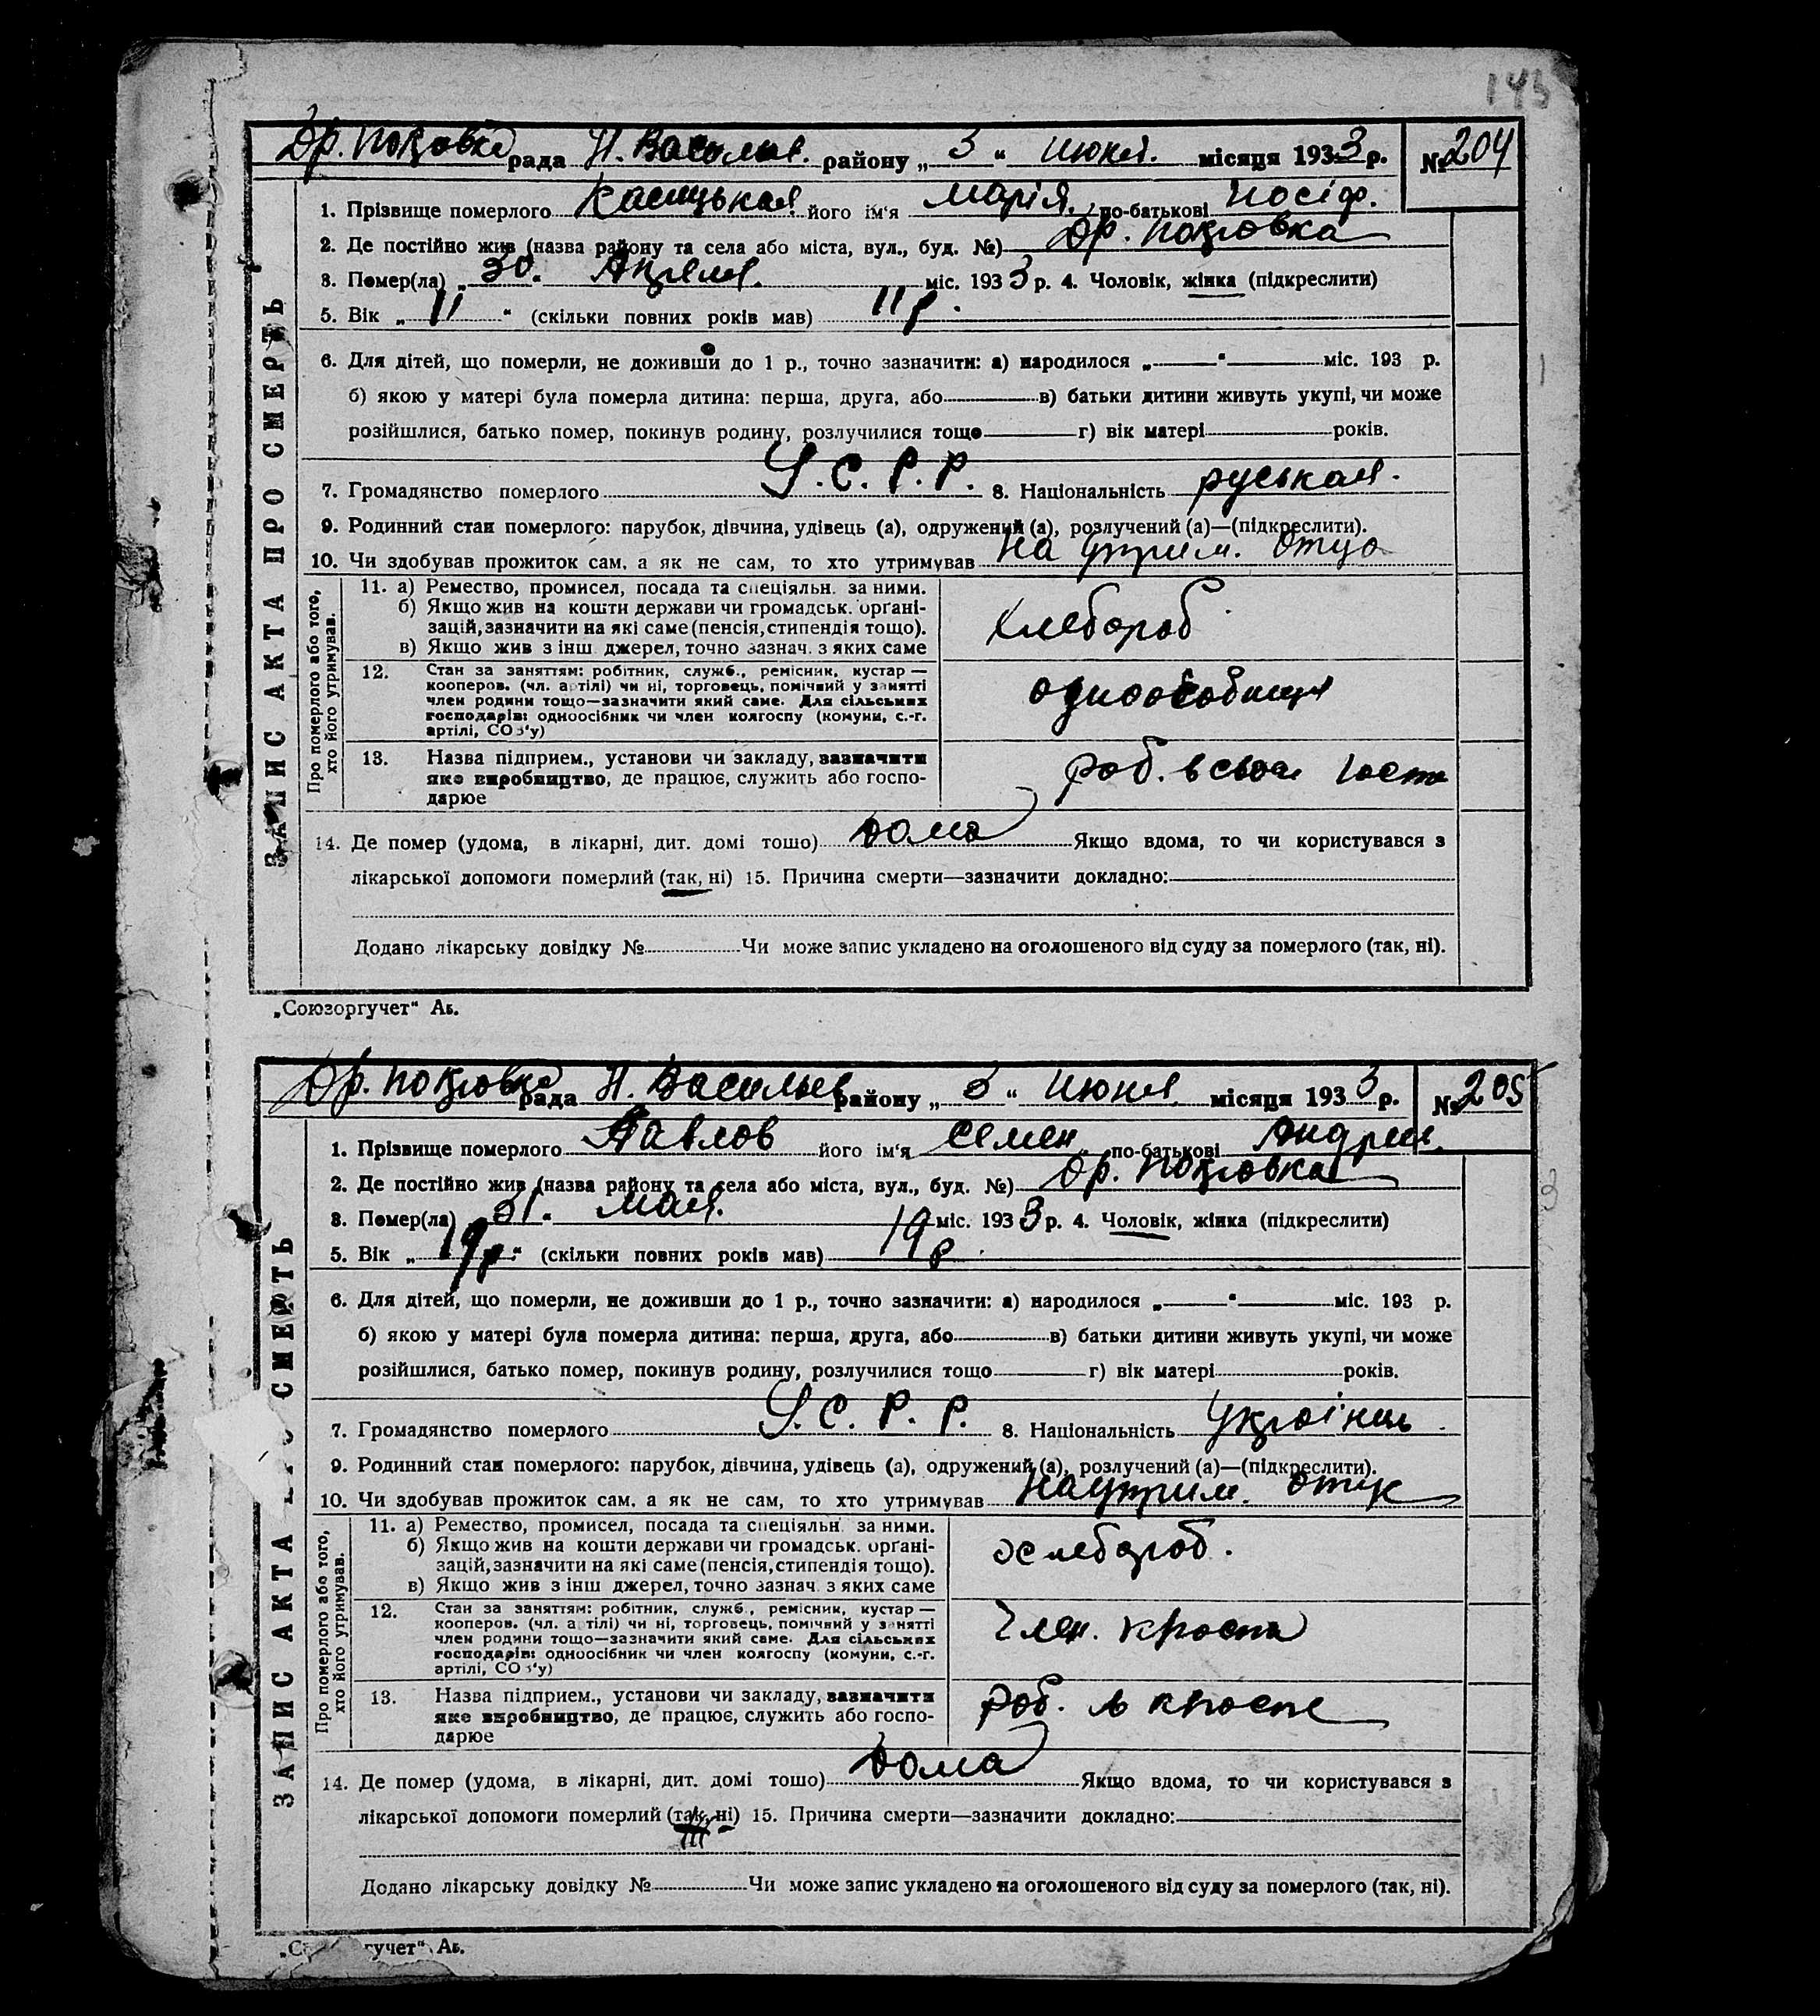 143
Др. Покровка рада Н. Васильев. району „ 3 “ июня. місяця 1933 р. № 204
ЗАПИС АКТА ПРО СМЕРТЬ
1. Прізвище померлого його ім‘я Марія. по-батькові Иосіф.
2. Де постійно жив (назва району та села або міста, вул., буд. №) Др. Покровка
3. Помер(ла) „ 30. Апреля. міс. 1933 р. 4. Чоловік, жінка (підкреслити)
5. Вік „ 11 “ (скільки повних років мав) 11 р.
6. Для дітей, що померли, не доживши до 1 р., точно зазначити: а) народилося „ “ міс. 193 р.
б) якою у матері була померла дитина: перша, друга, або в) батьки дитини живуть укупі, чи може
розійшлися, батько помер, покинув родину, розлучилися тощо г) вік матері років.
7. Громадянство померлого У.С.Р.Р. 8. Національність руськая.
9. Родинний стан померлого: парубок, дівчина, удівець (а), одружений (а), розлучений (а)—(підкреслити).
10. Чи здобував прожиток сам, а як не сам, то хто утримував На утрим. отца
Про померлого або того, хто його утримував.
11. а) Ремество, промисел, посада та спеціяльн. за ними.
б) Якщо жив на кошти держави чи громадськ. орґані-
зацій, зазначити на які саме (пенсія, стипендія тощо).
в) Якщо жив з інш джерел, точно зазнач. з яких саме
хлебороб
12. Стан за заняттям: робітник, служб., ремісник, кустар —
кооперов. (чл. артілі) чи ні, торговець, помічний у занятті
член родини тощо—зазначити який саме. Для сільських
господарів: одноосібник чи член колгоспу (комуни, с.-г.
артілі, СОЗ‘у)
13. Назва підприєм., установи чи закладу, зазначити
яке виробництво, де працює, служить або госпо-
дарює
роб. в свои
14. Де помер (удома, в лікарні, дит. домі тощо) дома Якщо вдома, то чи користувався з
лікарської допомоги померлий (так, ні) 15. Причина смерти—зазначити докладно:
Додано лікарську довідку № Чи може запис укладено на оголошеного від суду за померлого (так, ні).
„Союзоргучет“ Аь.
Др. Покровка рада Н. Васильев району „ 3 “ июня. місяця 1933 р. № 205
ЗАПИС АКТА ПРО СМЕРТЬ
1. Прізвище померлого Павлов його ім‘я Семен по-батькові Андрее.
2. Де постійно жив (назва району та села або міста, вул., буд. №) Др. Покровка
3. Помер(ла) 31. мая. міс. 1933 р. 4. Чоловік, жінка (підкреслити)
5. Вік „ 19 р. “ (скільки повних років мав) 19 р.
6. Для дітей, що померли, не доживши до 1 р., точно зазначити: а) народилося „ “ міс. 193 р.
б) якою у матері була померла дитина: перша, друга, або в) батьки дитини живуть укупі, чи може
розійшлися, батько помер, покинув родину, розлучилися тощо г) вік матері років.
7. Громадянство померлого У.С.Р.Р. 8. Національність Україниць
9. Родинний стан померлого: парубок, дівчина, удівець (а), одружений (а), розлучений (а)—(підкреслити).
10. Чи здобував прожиток сам, а як не сам, то хто утримував На утрим.
Про померлого або того, хто його утримував.
11. а) Ремество, промисел, посада та спеціяльн. за ними.
б) Якщо жив на кошти держави чи громадськ. орґані-
зацій, зазначити на які саме (пенсія, стипендія тощо).
в) Якщо жив з інш джерел, точно зазнач. з яких саме
хлебороб.
12. Стан за заняттям: робітник, служб., ремісник, кустар —
кооперов. (чл. артілі) чи ні, торговець, помічний у занятті
член родини тощо—зазначити який саме. Для сільських
господарів: одноосібник чи член колгоспу (комуни, с.-г.
артілі, СОЗ‘у)
Член.
13. Назва підприєм., установи чи закладу, зазначити
яке виробництво, де працює, служить або госпо-
дарює
роб. в
14. Де помер (удома, в лікарні, дит. домі тощо) дома Якщо вдома, то чи користувався з
лікарської допомоги померлий (так, ні) 15. Причина смерти—зазначити докладно:
Додано лікарську довідку № Чи може запис укладено на оголошеного від суду за померлого (так, ні).
гучет“ Аь.